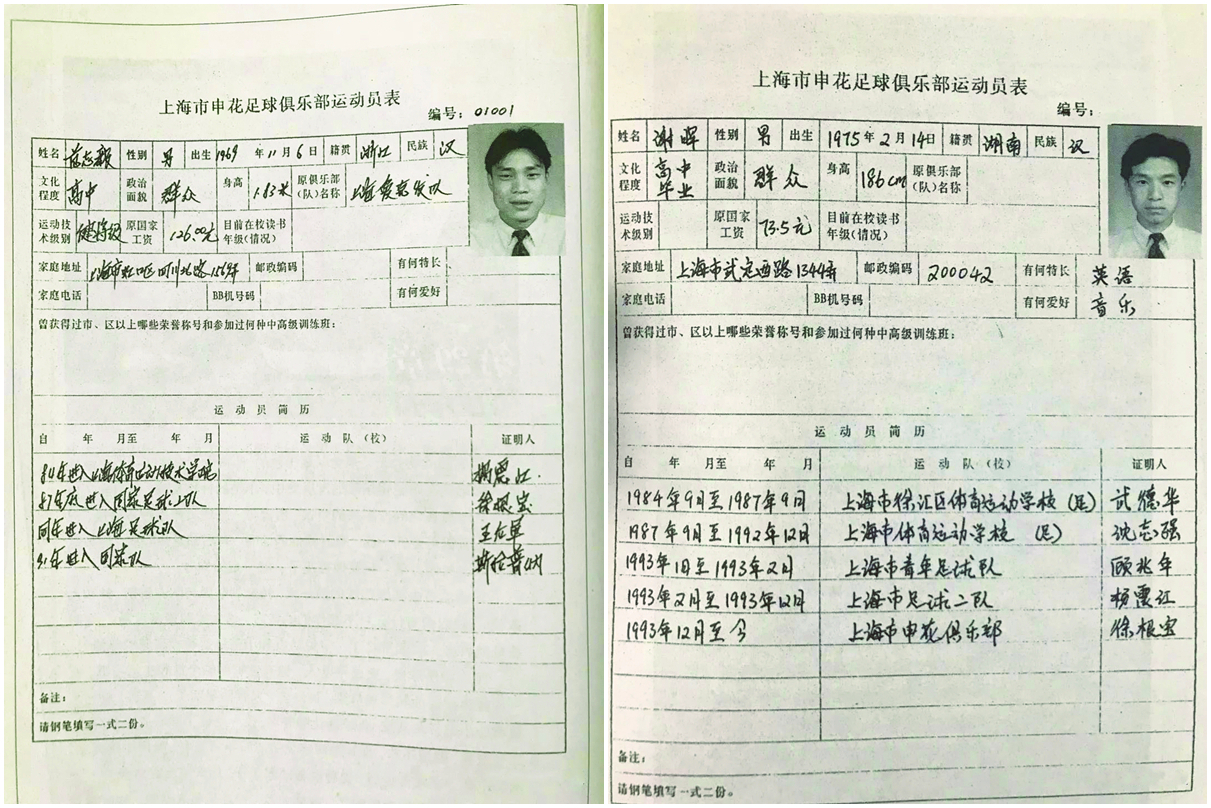 上海市申花足球俱乐部运动员表
编号：01001
姓名 范志毅 性别 男 出生 1969年11月6日 籍贯 浙江 民族 汉
文化程度 高中 政治面貌 群众 身高 1.83米 原俱乐部(队)名称
运动技术级别 健将级 原国家工资 126.00元 目前在校读书年级(情况)
家庭地址 上海市虹口区四川北路 邮政编码 有何特长
家庭电话 BB机号码 有何爱好
曾获得过市、区以上哪些荣誉称号和参加过何种中高级训练班：
运动员简历
自 年 月至 年 月 运动队(校) 证明人
84年进入上海体育运动技术学院
87年底进入国家足球二队 徐根宝
同年进入上海足球队 王后军
91年进入国家队 斯拉普纳
备注：
请钢笔填写一式二份。
上海市申花足球俱乐部运动员表
编号：
姓名 谢晖 性别 男 出生 1975年2月14日 籍贯 湖南 民族 汉
文化程度 高中毕业 政治面貌 群众 身高 186cm 原俱乐部(队)名称
运动技术级别 原国家工资 73.5元 目前在校读书年级(情况)
家庭地址 上海市武定西路1344弄 邮政编码 200042 有何特长 英语
家庭电话 BB机号码 有何爱好 音乐
曾获得过市、区以上哪些荣誉称号和参加过何种中高级训练班：
运动员简历
自 年 月至 年 月 运动队(校) 证明人
1984年9月至1987年9月 上海市徐汇区体育运动学校(足) 武德华
1987年9月至1992年12月 上海市体育运动学校(足) 沈志强
1993年1月至1993年2月 上海市青年足球队 顾兆年
1993年2月至1993年12月 上海市足球二队
1993年12月至今 上海市申花俱乐部 徐根宝
备注：
请钢笔填写一式二份。